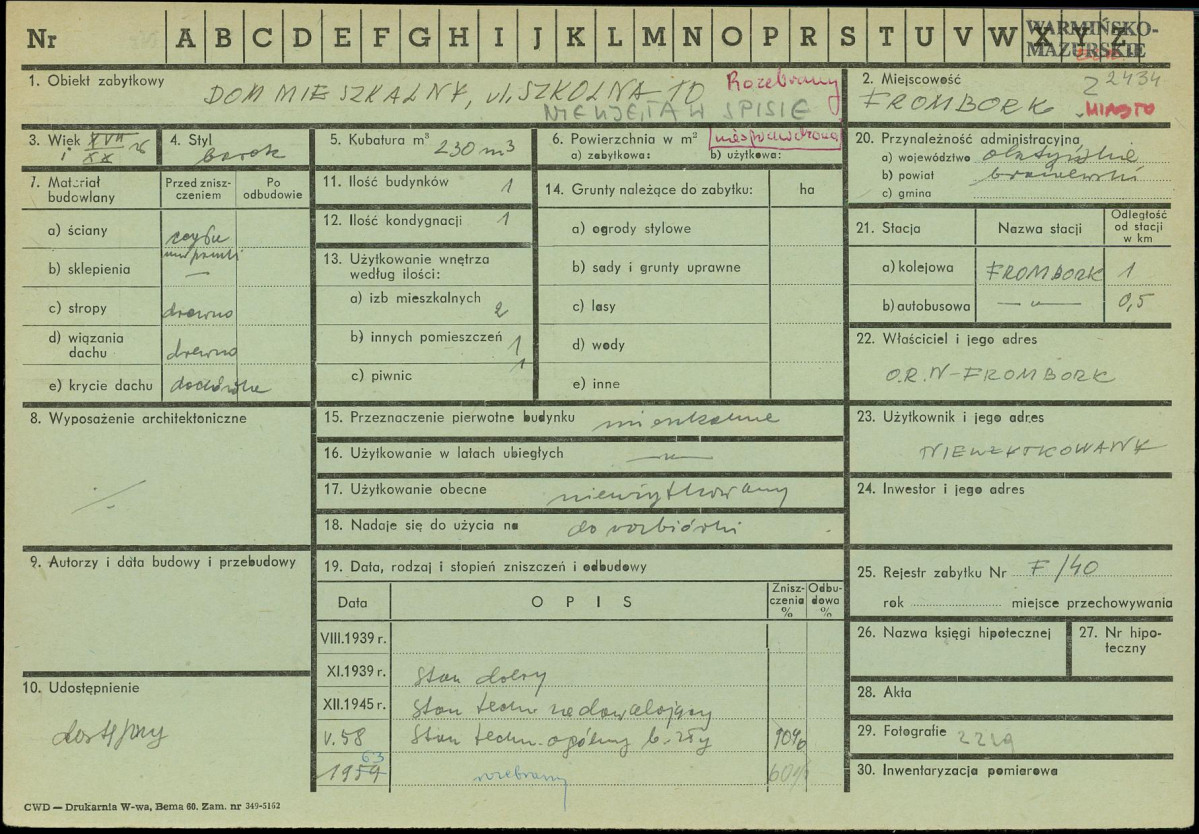 Nr A B C D E F G H I J K L M N O P R S T U V W X Y Z
WARMIŃSKO-
MAZURSKIE
1. Obiekt zabytkowy
DOM MIESZKALNY, ul. SZKOLNA 10
Rozebrany
NIE UJĘTA W SPISIE
2. Miejscowość
Z 2434
FROMBORK
MIASTO
3. Wiek XVII i XX
4. Styl barok
5. Kubatura m³ 230 m3
6. Powierzchnia w m²
a) zabytkowa: b) użytkowa:
niesprawdzona
20. Przynależność administracyjna
a) województwo olsztyńskie
b) powiat braniewski
c) gmina
7. Materiał budowlany
Przed zniszczeniem
Po odbudowie
a) ściany cegła
mur pruski
b) sklepienia —
c) stropy drewno
d) wiązania dachu drewno
e) krycie dachu dachówka
11. Ilość budynków 1
12. Ilość kondygnacji 1
13. Użytkowanie wnętrza według ilości:
a) izb mieszkalnych 2
b) innych pomieszczeń 1
c) piwnic 1
14. Grunty należące do zabytku: ha
a) ogrody stylowe
b) sady i grunty uprawne
c) lasy
d) wody
e) inne
21. Stacja
Nazwa stacji
Odległość od stacji w km
a) kolejowa FROMBORK 1
b) autobusowa —"— 0,5
22. Właściciel i jego adres
O.R.N - FROMBORK
8. Wyposażenie architektoniczne
15. Przeznaczenie pierwotne budynku mieszkalne
16. Użytkowanie w latach ubiegłych —"—
17. Użytkowanie obecne nieużytkowany
18. Nadaje się do użycia na do rozbiórki
23. Użytkownik i jego adres
NIEUŻYTKOWANY
24. Inwestor i jego adres
9. Autorzy i data budowy i przebudowy
19. Data, rodzaj i stopień zniszczeń i odbudowy
Data OPIS Zniszczenia % Odbudowa %
VIII.1939 r.
XI.1939 r. Stan dobry
XII.1945 r. Stan techn. niedowalający
V.58 Stan techn. ogólny b. zły 90%
1959 63 rozebrany 60%
25. Rejestr zabytku Nr F/40
rok miejsce przechowywania
26. Nazwa księgi hipotecznej
27. Nr hipoteczny
10. Udostępnienie
dostępny
28. Akta
29. Fotografie 2219
30. Inwentaryzacja pomiarowa
CWD — Drukarnia W-wa, Bema 60. Zam. nr 349-5162